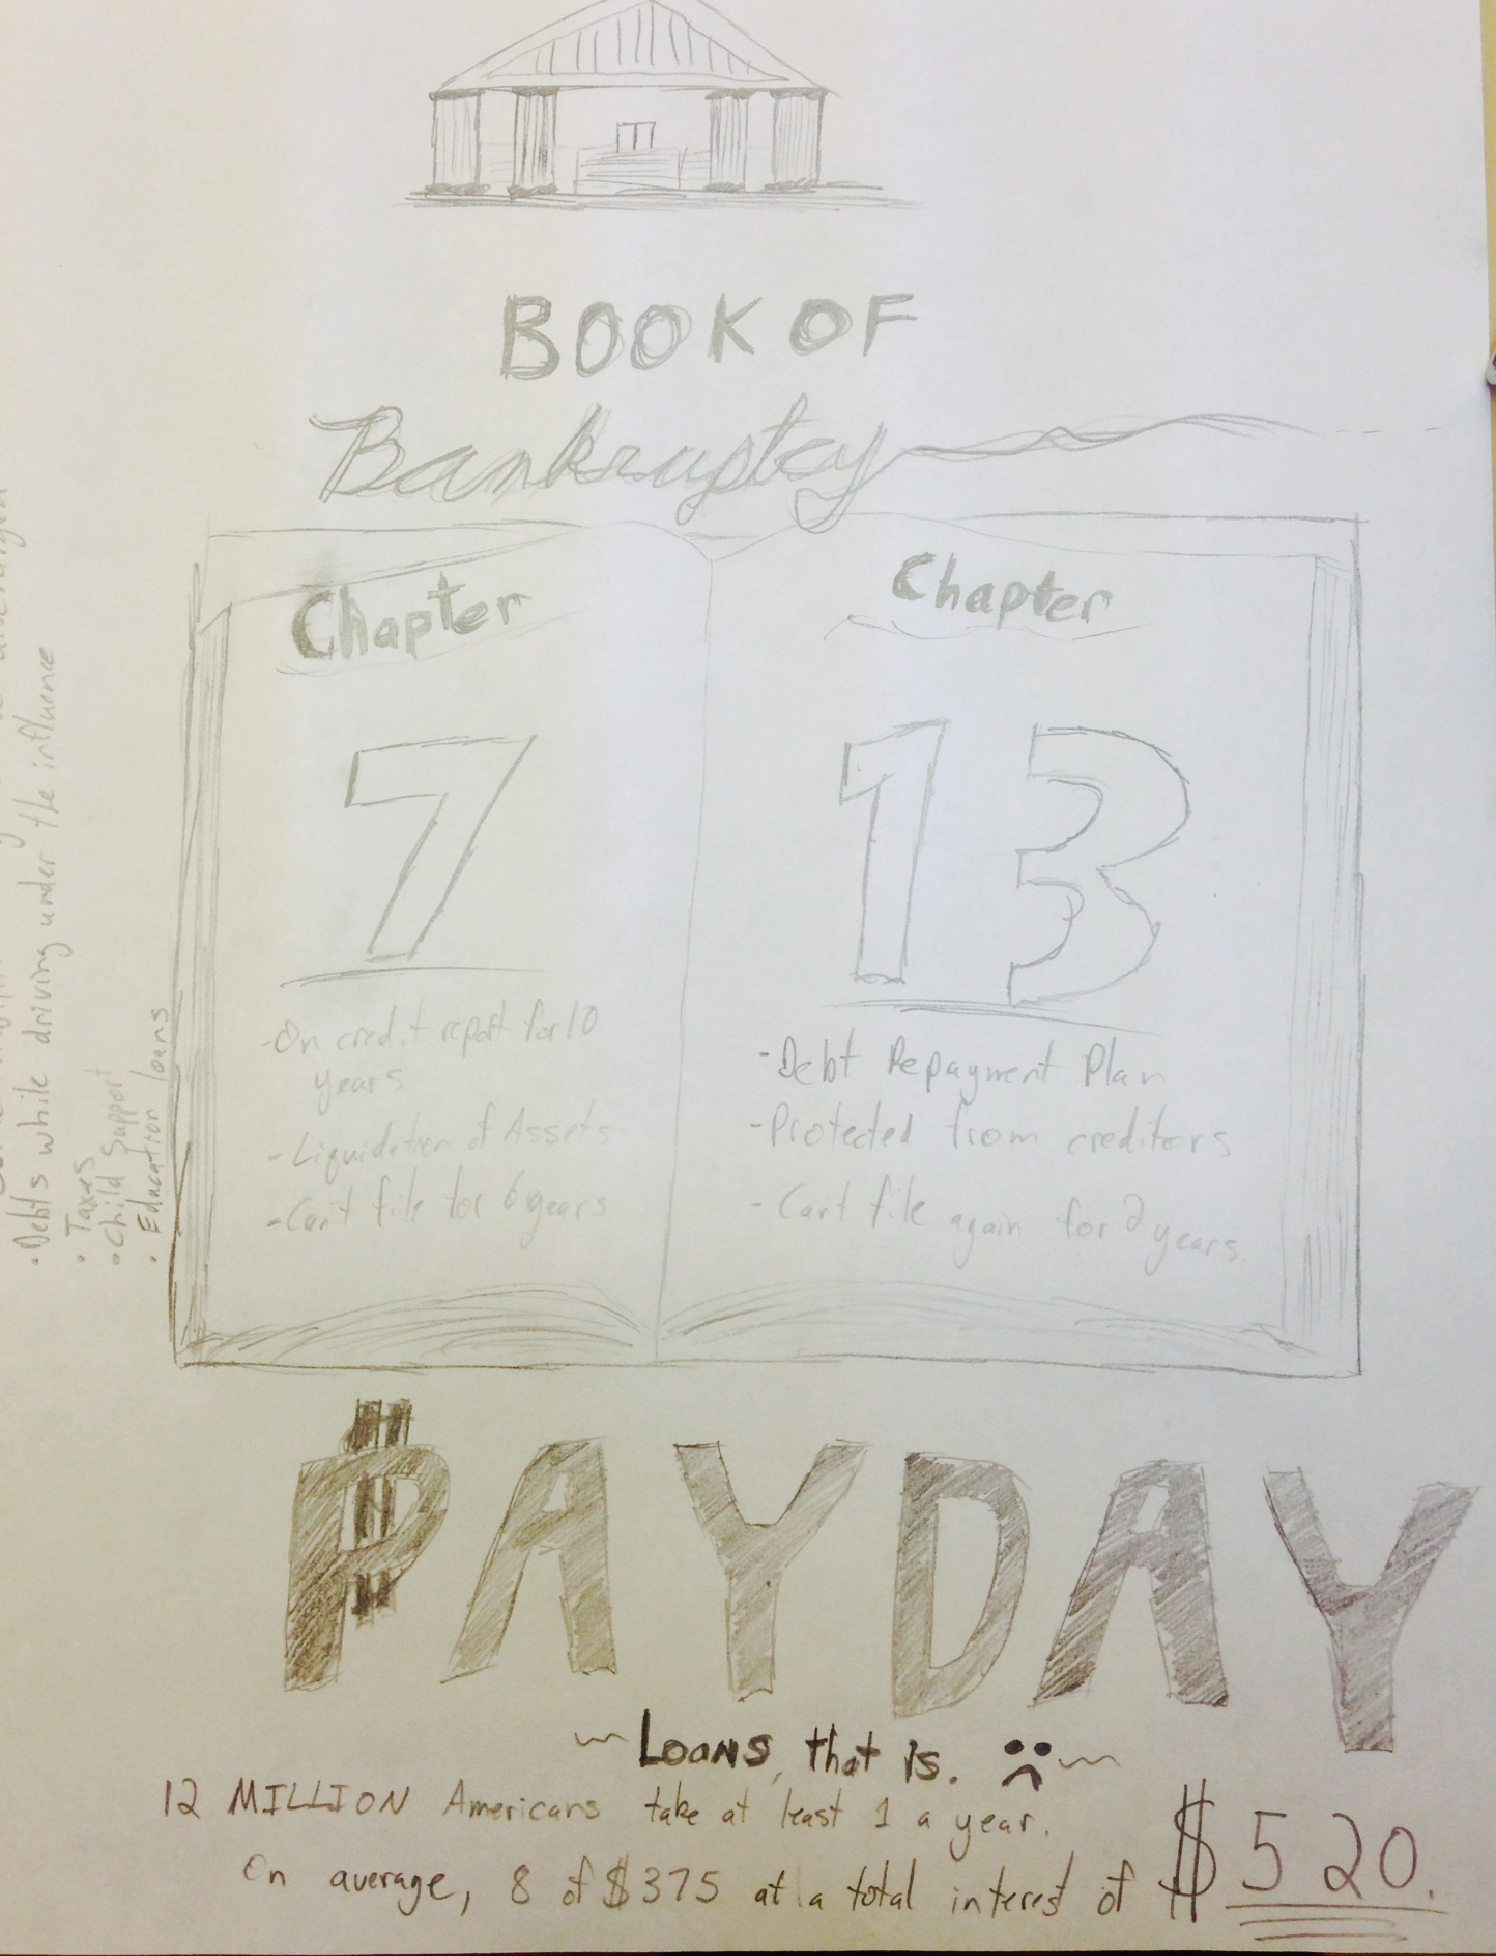 BOOK OF
Bankruptcy
Chapter
7
-On credit report for 10
years
-Liquidation of Assets
-Can't file for 6 years
Chapter
13
-Debt Repayment Plan
-Protected from creditors
-Can't file again for 2 years.
discharged
•Debts while driving under the influence
•Taxes
•Child Support
•Education loans
PAYDAY
~Loans, that is. ~
12 MILLION Americans take at least 1 a year.
On average, 8 of $375 at a total interest of $520.